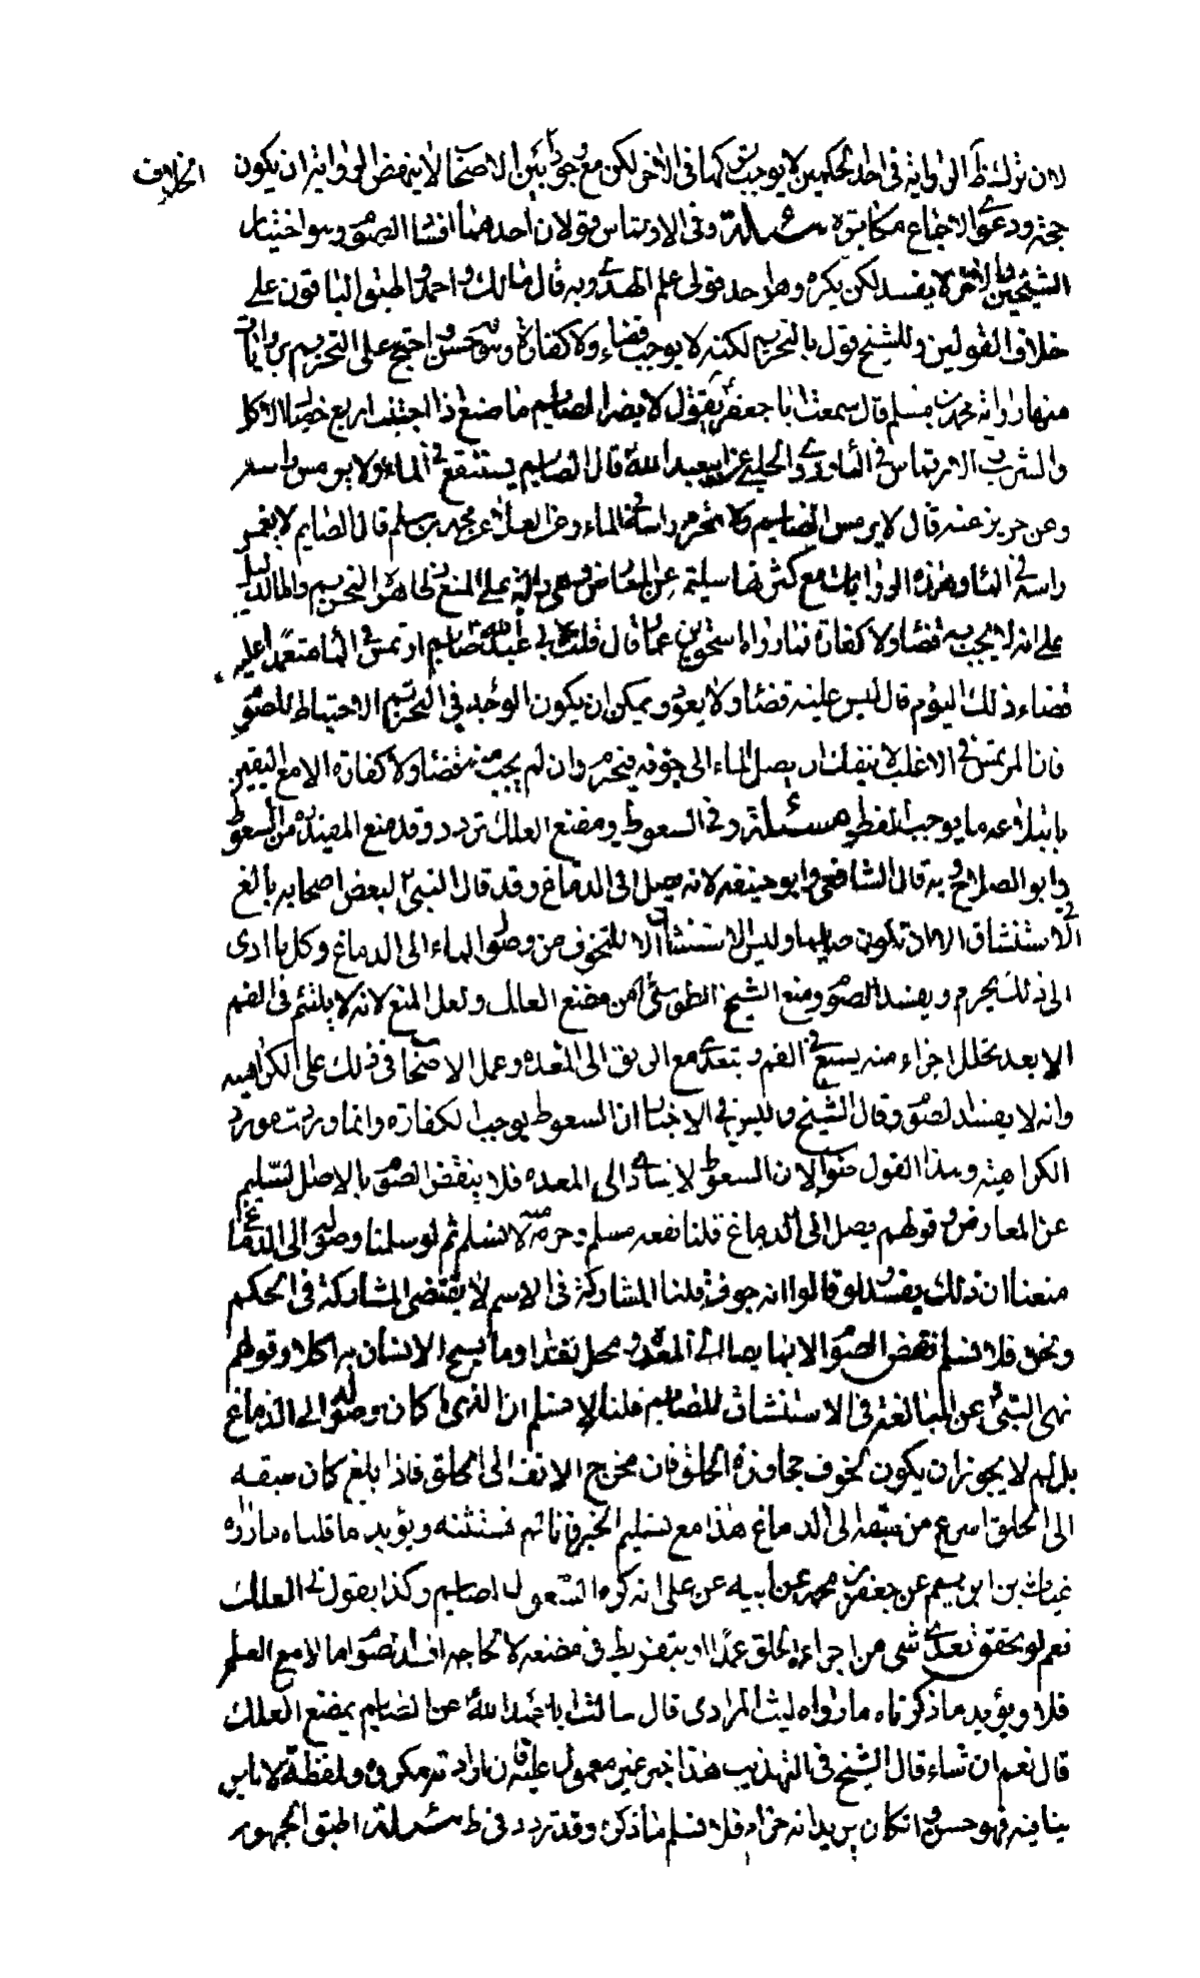 لان ترك ظ الرواية في احد الحكمين لا يوجب تركها في الاخر لكن مع وجود بين الاصحاب لا ينهض الرواية ان يكون الخلاف
حجة ودعوى الاجماع مكابرة مسئلة وفي الارتماس قولان احدهما افساد الصوم وهو اختيار
الشيخين والاخر لا يفسد لكن يكره وهو احد قولي علم الهدى وبه قال مالك واحمد واطبق الباقون على
خلاف القولين وللشيخ قول بالتحريم لكنه لا يوجب قضاء ولا كفارة وهو حسن احتج على التحريم بروايات
منها رواية محمد بن مسلم قال سمعت ابا جعفر يقول لا يضر الصايم ما صنع اذا اجتنب اربع خصال الاكل
والشرب الارتماس في الماء وروى الحلبي عن ابي عبد الله قال الصايم يستنقع في الماء ولا يرمس راسه
وعن حريز عنه قال لا يرمس الصايم ولا المحرم راسه في الماء وعن العلا عن محمد بن مسلم قال الصايم لا يغمس
راسه في الماء وهذه الروايات مع كثرتها سليمة عن المعارض وهي دالة على المنع فظاهر التحريم واما الدليل
على انه لا يجب به قضاء ولا كفارة فما رواه اسحق بن عمار قال قلت لابي عبد الله صايم ارتمس في الماء متعمدا عليه
قضاء ذلك اليوم قال ليس عليه قضاء ولا يعود ويمكن ان يكون الوجه في التحريم الاحتياط للصوم
فان المرتمس في الاغلب لا ينفك ان يصل الماء الى جوفه فيحرم وان لم يجب منه قضاء ولا كفارة الا مع اليقين
بابتلاعه ما يوجب الفطر مسئلة وفي السعوط ومضغ العلك تردد وقد منع المفيد من السعوط
وابو الصلاح وبه قال الشافعي وابو حنيفة لانه يصل الى الدماغ وقد قال النبي لبعض اصحابه بالغ
في الاستنشاق الا ان تكون صايما وليس الاستنشاق الا للتخوف من وصول الماء الى الدماغ وكل ما ادى
الى ذلك يحرم ويفسد الصوم ومنع الشيخ الطوسي من مضغ العلك ولعل المنع لانه لا يلتئم في الفم
الا بعد تحلل اجزاء منه يسيغ في الفم ويتعدى مع الريق الى المعدة وعمل الاصحاب في ذلك على الكراهية
وانه لا يفسد الصوم وقال الشيخ وليس في الاخبار ان السعوط يوجب الكفارة وانما وردت مورد
الكراهية وهذا القول صواب لان السعوط لا ينادى الى المعدة فلا ينقض الصوم بالاصل لتسليم
عن المعارض وقولهم يصل الى الدماغ قلنا نفعه مسلم وحرمته لا نسلم ثم لو سلمنا وصوله الى الدماغ
منعنا ان ذلك يفسد لو قالوا انه جوف قلنا المشاركة في الاسم لا يقتضي المشاركة في الحكم
ونحن فلا نسلم نقض الصوم الا بما يصل الى المعدة محل نقدا وما يسمى الانسان به اكلا وقولهم
نهى النبي عن المبالغة في الاستنشاق للصايم قلنا لا نسلم ان الذي كان وصوله الى الدماغ
بل لم لا يجوز ان يكون لخوف مجاوزة الحلق فان مخرج الانف الى الحلق فاذا بلغ كان سبقه
الى الحلق اسرع من سبقه الى الدماغ هذا مع تسليم الخبر فاناهم نستثنه ويؤيد ما قلناه ما رواه
غياث بن ابراهيم عن جعفر بن محمد عن ابيه عن علي انه كره السعوط للصايم وكذا يقول في العلك
نعم لو تحقق تعدى شيء من اجزاء الحلق عمدا او بتفريط في مضغه لا لحاجه افسد الصوم اما لا مع العلم
فلا ويؤيد ما ذكرناه ما رواه ليث المرادي قال سالت ابا عبد الله عن الصايم يمضغ العلك
قال نعم ان شاء قال الشيخ في التهذيب هذا خبر غير معمول عليه فان اراد ته مكروه ولفظة لا باس
ينافيه فهو حسن وان كان يريد انه حرام فلا نسلم ما ذكره وقد تردد في ط مسئلة اطبق الجمهور